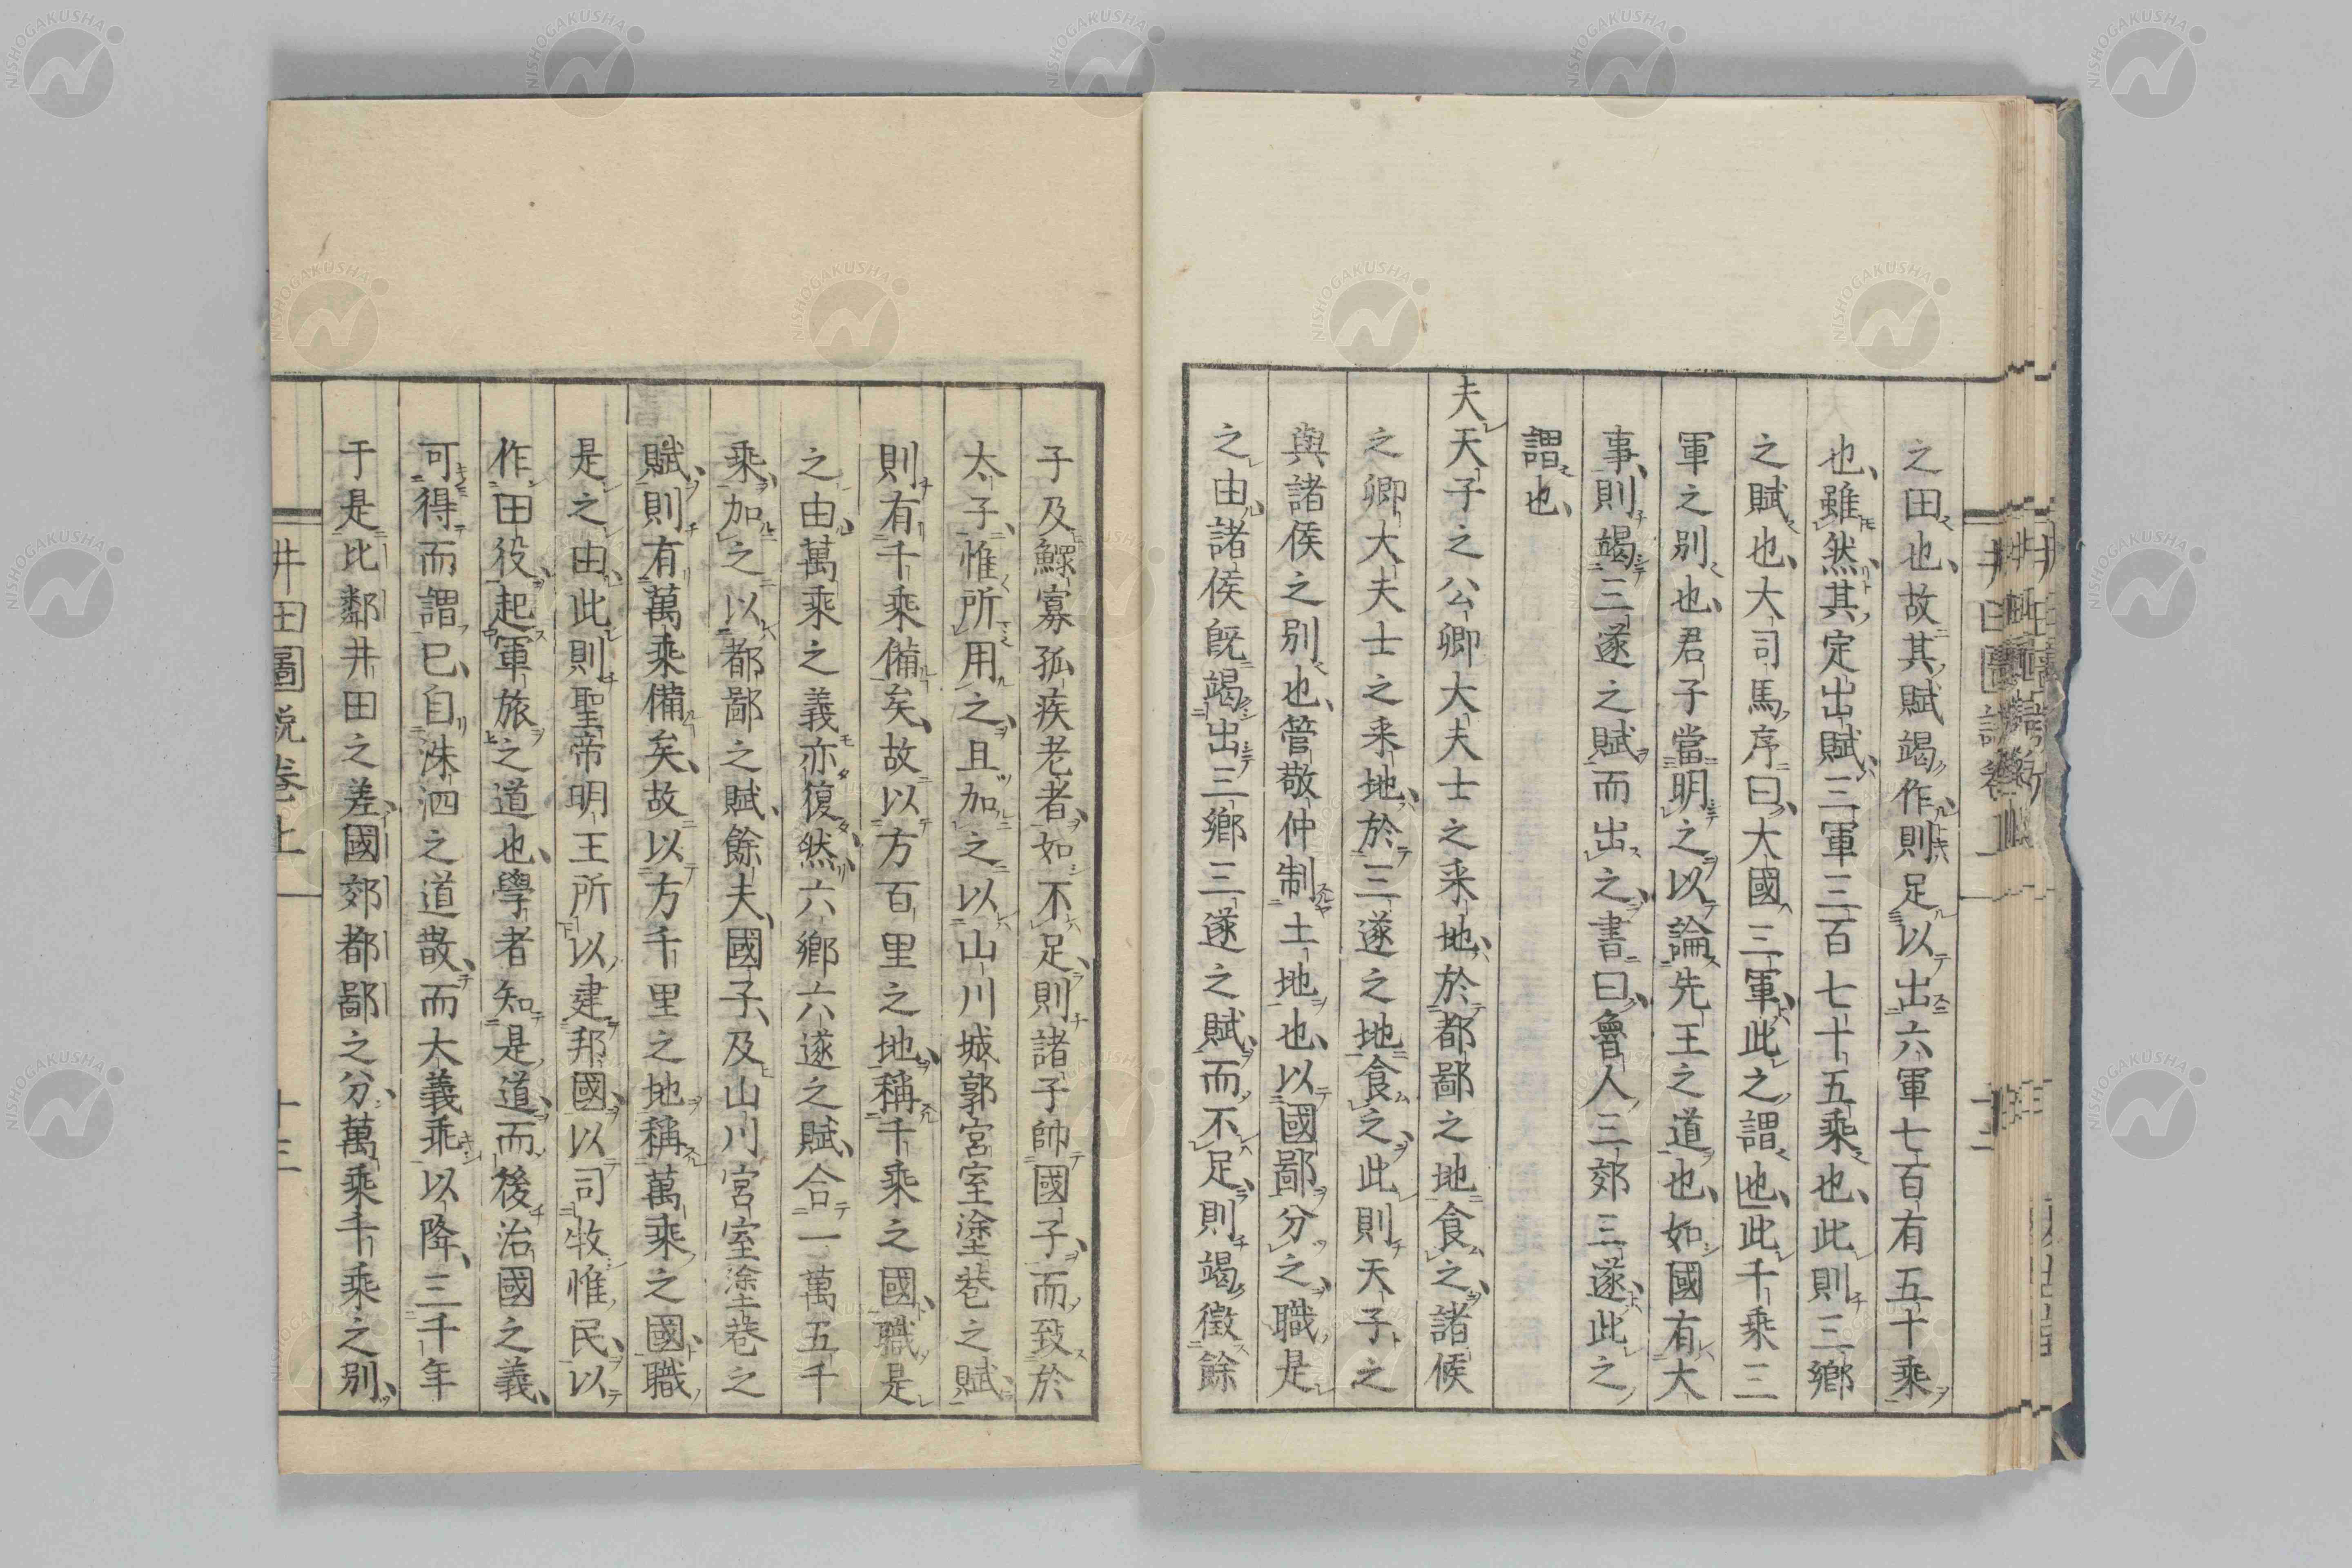 之田也、故其賦竭作則足以出六軍七百有五十乘
也、雖然其定出賦三軍三百七十五乘也、此則三鄉
之賦也、大司馬序曰、大國三軍、此之謂也、此千乘三
軍之別也、君子當明之以論先王之道也、如國有大
事、則竭三遂之賦而出之、書曰、魯人三郊三遂、此之
謂也、
夫天子之公卿大夫士之釆地、於都鄙之地食之、諸候
之卿大夫士之釆地、於三遂之地食之、此則天子之
與諸侯之別也、管敬仲制土地也、以國鄙分之、職是
之由、諸侯既竭出三鄉三遂之賦、而不足、則竭徵餘
子及鰥寡孤疾老者、如不足、則諸子帥國子、而致於
太子、惟所用之、且加之以山川城郭宮室塗巷之賦、
則有千乘備矣、故以方百里之地、稱千乘之國、職是
之由、萬乘之義亦復然、六鄉六遂之賦、合一萬五千
乘、加之以都鄙之賦、餘夫、國子、及山川宮室塗巷之
賦、則有萬乘備矣、故以方千里之地稱萬乘之國、職
是之由、此則聖帝明王所以建邦國、以司牧惟民、以
作田役、起軍旅之道也、學者知是道、而後治國之義、
可得而謂已、自洙泗之道散、而大義乖以降、三千年
于是比鄰井田之差、國郊都鄙之分、萬乘千乘之別、
井田圖説卷上
十三